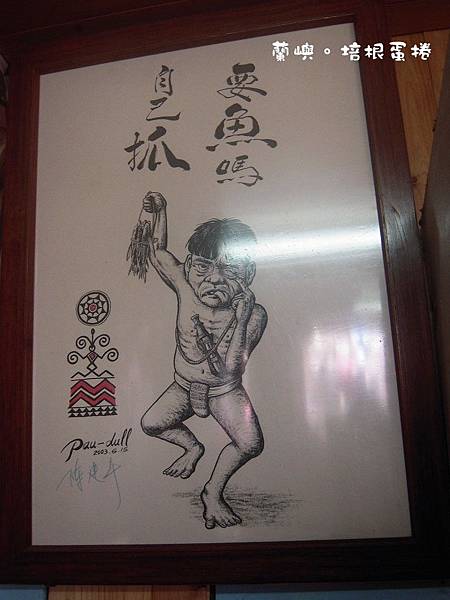 蘭嶼。培根蛋捲
要魚嗎
自己抓
Pau-dull
2003.6.15